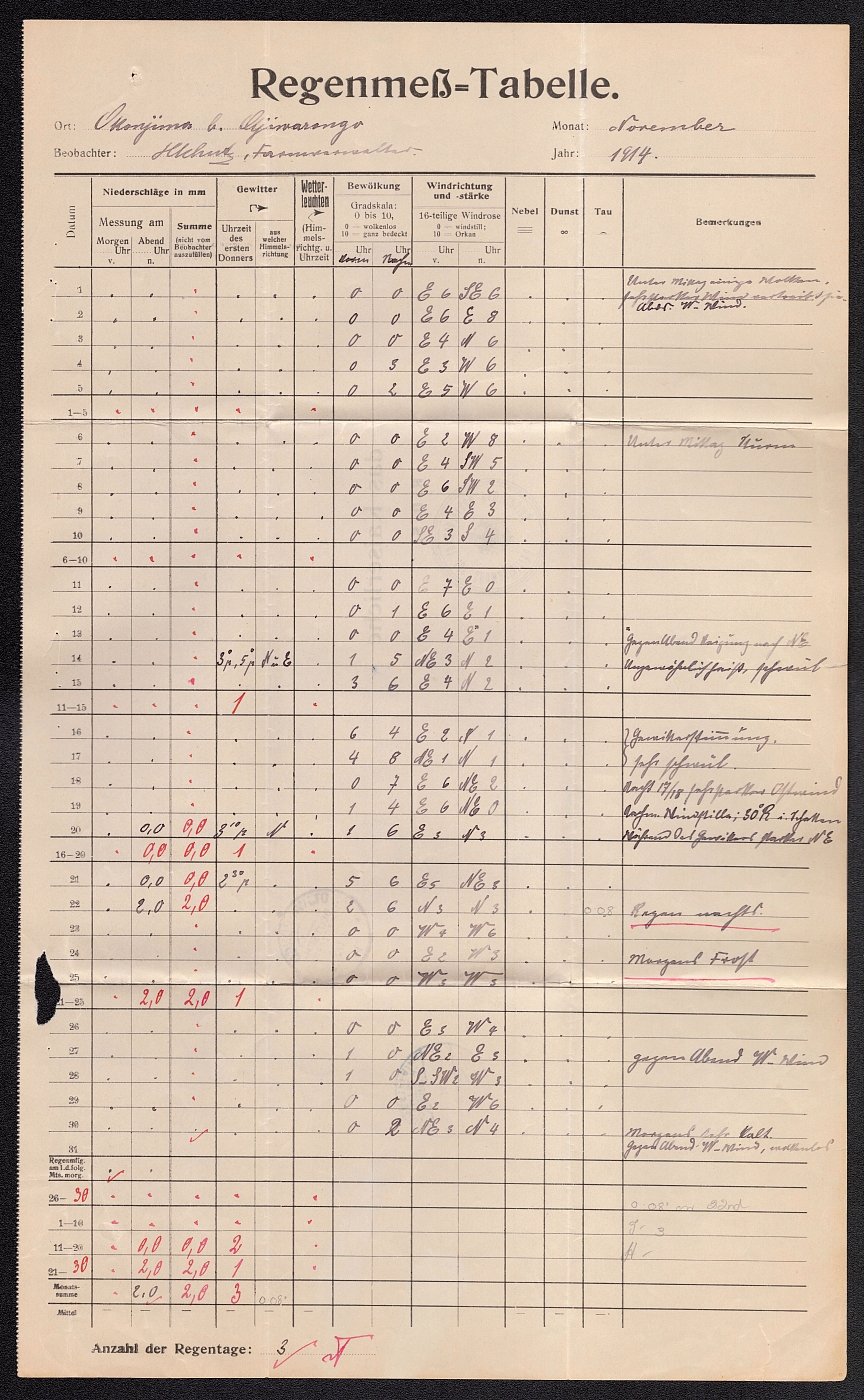 Regenmeß=Tabelle.
Ort: Okonjima b. Otjiwarongo Monat: November
Beobachter: Farmverwalter. Jahr: 1914.
Datum
Niederschläge in mm
Gewitter
Wetter-leuchten
Bewölkung
Windrichtung und -stärke
Nebel
Dunst
Tau
Bemerkungen
Messung am
Morgen Uhr v.
Abend Uhr n.
Summe
(nicht vom Beobachter auszufüllen)
Uhrzeit des ersten Donners
aus welcher Himmels-richtung
(Him-mels-richtg. u. Uhrzeit
Gradskala: 0 bis 10,
0 — wolkenlos
10 — ganz bedeckt
16-teilige Windrose
0 — windstill;
10 — Orkan
Uhr Vorm Uhr Nachm
Uhr v. Uhr n.
1 0 0 E 6 SE 6 Unter Mittag einige Wolken.
Abds. W-Wind.
2 0 0 E 6 E 8
3 0 0 E 4 N 6
4 0 3 E 3 W 6
5 0 2 E 5 W 6
1—5
6 0 0 E 2 W 8 Unter Mittag Sturm
7 0 0 E 4 SW 5
8 0 0 E 6 SW 2
9 0 0 E 4 E 3
10 0 0 SE 3 S 4
6—10
11 0 0 E 7 E 0
12 0 1 E 6 E 1
13 0 0 E 4 E 1 Gegen Abend Neigung nach NE
14 3 p, 5 p N u E 1 5 NE 3 N 2 Ungewöhnlich heiß, schwül
15 3 6 E 4 N 2
11—15 1
16 6 4 E 2 N 1 Gewitterstimmung.
17 4 8 NE 1 N 1 sehr schwül.
18 0 7 E 6 NE 2 Nacht 17/18 sehr starker Ostwind
19 1 4 E 6 NE 0 Nachm. Windstille; 30°R i. Schatten
20 0,0 0,0 3 10 p N 1 6 E 3 N 3 Während des Gewitters starker NE
16—20 0,0 0,0 1
21 0,0 0,0 2 30 p 5 6 E 5 NE 3
22 2,0 2,0 2 6 N 3 N 3 0.08 Regen nachts.
23 0 0 W 4 W 6
24 0 0 E 2 W 3 Morgens Frost
25 0 0 W 3 W 5
21—25 2,0 2,0 1
26 0 0 E 3 W 4
27 1 0 NE 2 E 3 gegen Abend W-Wind
28 1 0 S-SW 2 W 3
29 0 0 E 2 W 6
30 0 2 NE 3 N 4 Morgens sehr kalt.
31 Gegen Abend W-Wind, wolkenlos
Regenmßg. am 1. d. folg. Mts. morg.
26—30 0.08" on 22nd
1—10 T- 3
11—20 0,0 0,0 2 H -
21—30 2,0 2,0 1
Monats-summe 2,0 2,0 3 0.08"
Mittel
Anzahl der Regentage: 3